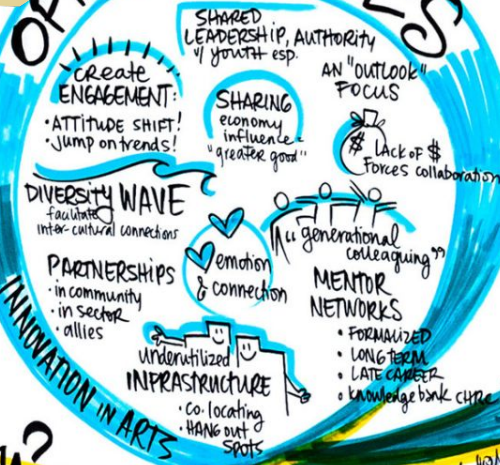 SHARED
LEADERSHIP, AUTHORITY
w/ youth esp.
create
ENGAGEMENT:
• ATTITUDE SHIFT!
• Jump on trends!
SHARING
economy
influence -
"greater good"
AN "OUTLOOK"
FOCUS
$ LACK OF $
Forces collaboration
DIVERSITY WAVE
facilitate
inter-cultural connections
"generational
colleaguing"
emotion
& connection
PARTNERSHIPS
• in community
• in sector
• allies
MENTOR
NETWORKS
• FORMALIZED
• LONG TERM
• LATE CAREER
• knowledge bank CHRC
underutilized
INFRASTRUCTURE
• co-locating
• HANG out
SPOTS
INNOVATION in ARTS
?